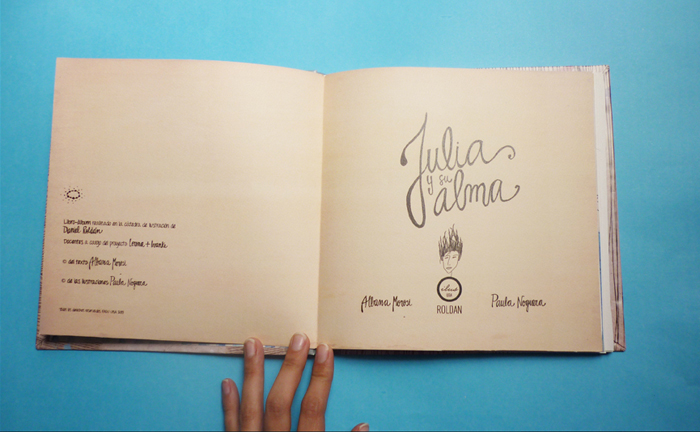 Libro-álbum realizado en la cátedra de Ilustración de
Daniel Roldán
Docentes a cargo del proyecto
© del texto Albana Morosi
© de las ilustraciones Paula Noguera
Julia
y su
alma
ilus
ROLDAN
Albana Morosi
Paula Noguera